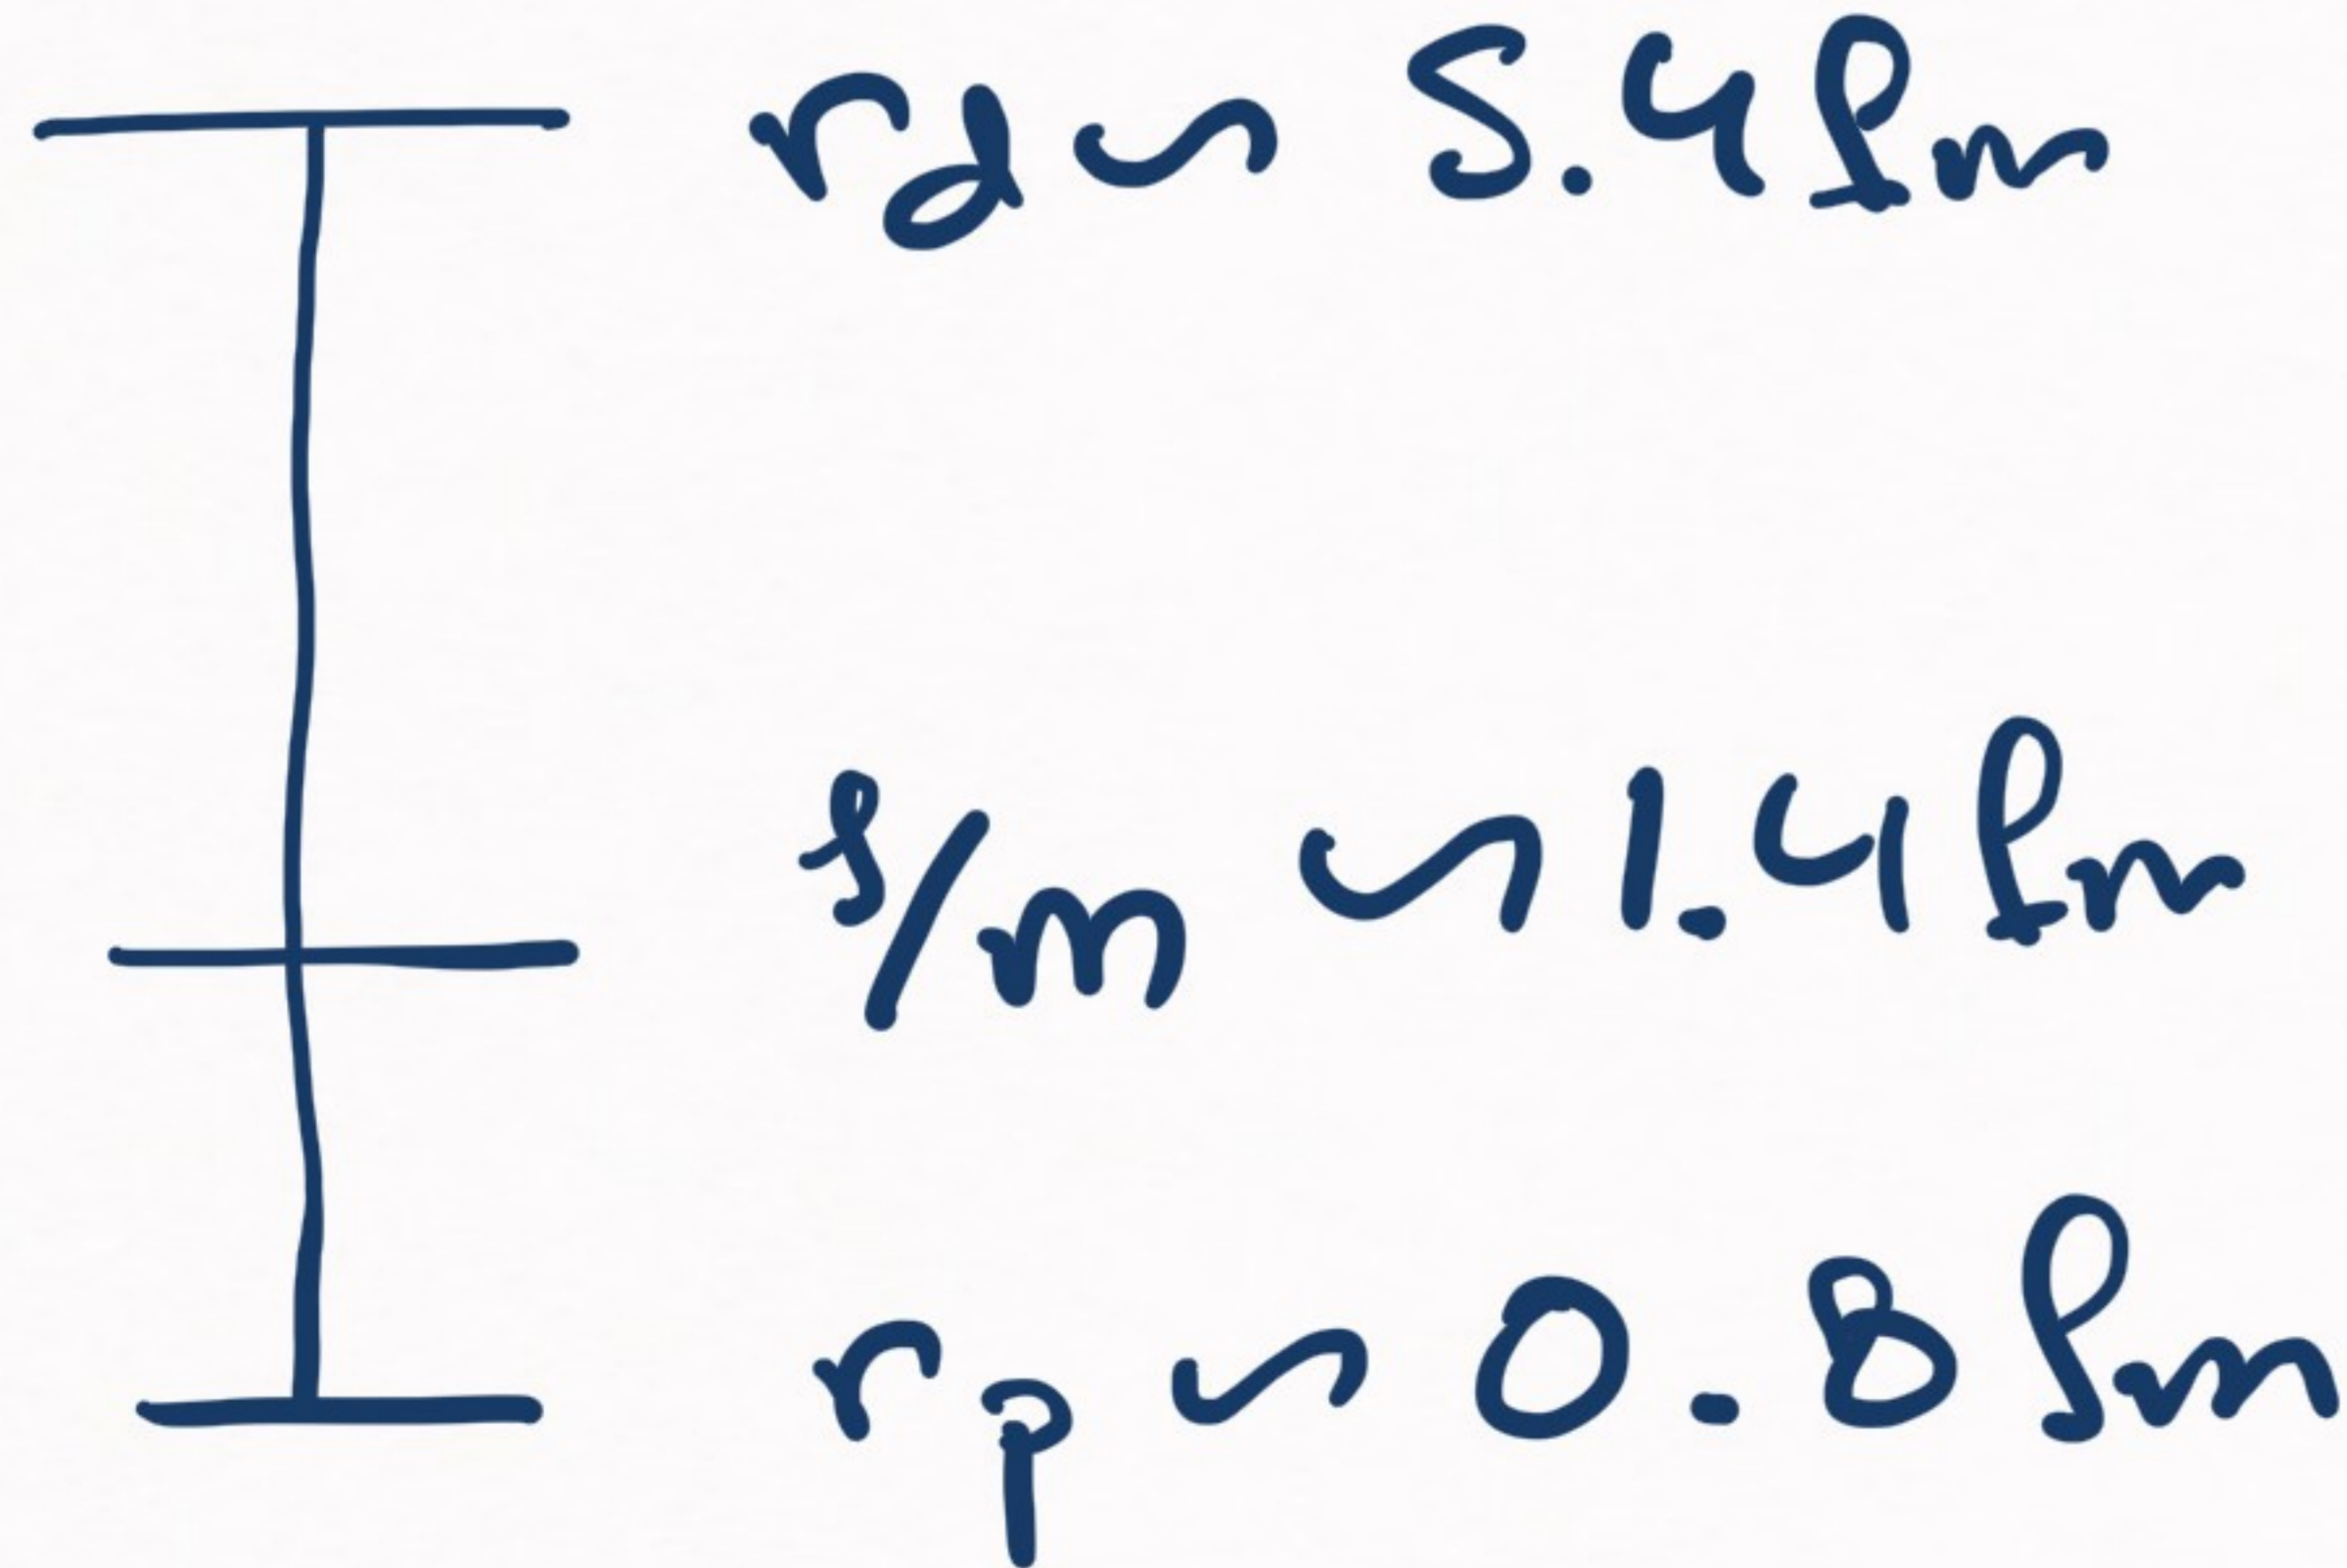 r_d ~ 5.4 fm
1/m ~ 1.4 fm
r_p ~ 0.8 fm